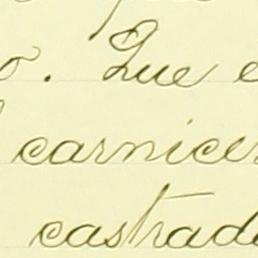 o. Que e
carnicer
castrado